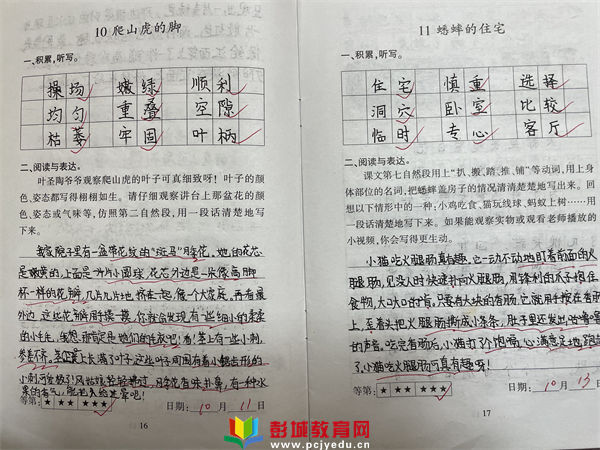 10 爬山虎的脚
一、积累,听写。
操场 嫩绿 顺利
均匀 重叠 空隙
枯萎 牢固 叶柄
二、阅读与表达。
叶圣陶爷爷观察爬山虎的叶子可真细致呀!叶子的颜
色、姿态都写得栩栩如生。请仔细观察讲台上那盆花的颜
色、姿态或气味等,仿照第二自然段,用一段话清楚地写
下来。
我家院子里有一盆带花纹的“斑马”海花,她的花芯
是嫩黄的,上面是小圆球,花芯外边是一张像高脚
杯一样的花瓣,几片几片地挤在一起,像一个大家庭,再看最
外边,这些花瓣用手摸一摸,你就会发现有一些小的柔柔
的小毛毛,我想,那肯定是她们的
参差不齐。茎上长满了叶子,这些叶子周围有着小锯齿形的
小刺
果的香气,
等第:★ ★★ ★★★ 日期:10 月 11 日
16
11 蟋蟀的住宅
一、积累,听写。
住宅 慎重 选择
洞穴 卧室 比较
临时 专心 客厅
二、阅读与表达。
课文第七自然段用上“扒、搬、踏、推、铺”等动词,用上身
体部位的名词,把蟋蟀盖房子的情况清清楚楚地写出来。回
想以下情形中的一种:小鸡吃食、猫玩线球、蚂蚁上树……用
一段话清楚地写下来。如果能观察实物或观看老师播放的
小视频,你会写得更生动。
小猫吃火腿肠真有趣,它一动不动地盯着前面的火
腿肠,见没人时快速扑向火腿肠,用锋利的爪子抱住
食物,大口大口的吃,只要有大块的香肠,它就用手按在香肠
上,歪着头把火腿肠撕成小条条,肚子里还发出咕噜噜
的声音。吃完香肠后,小猫打了个饱嗝,心满意足地跑
了,小猫吃火腿肠可真有趣呀!
等第:★ ★★ ★★★ 日期:10 月 13 日
17
彭城教育网
www.pcjyedu.cn